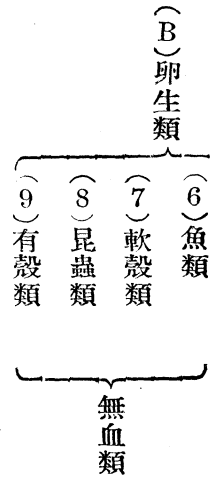 (B)卵生類
(6)魚類
(7)軟殼類
(8)昆蟲類
(9)有殼類
無血類